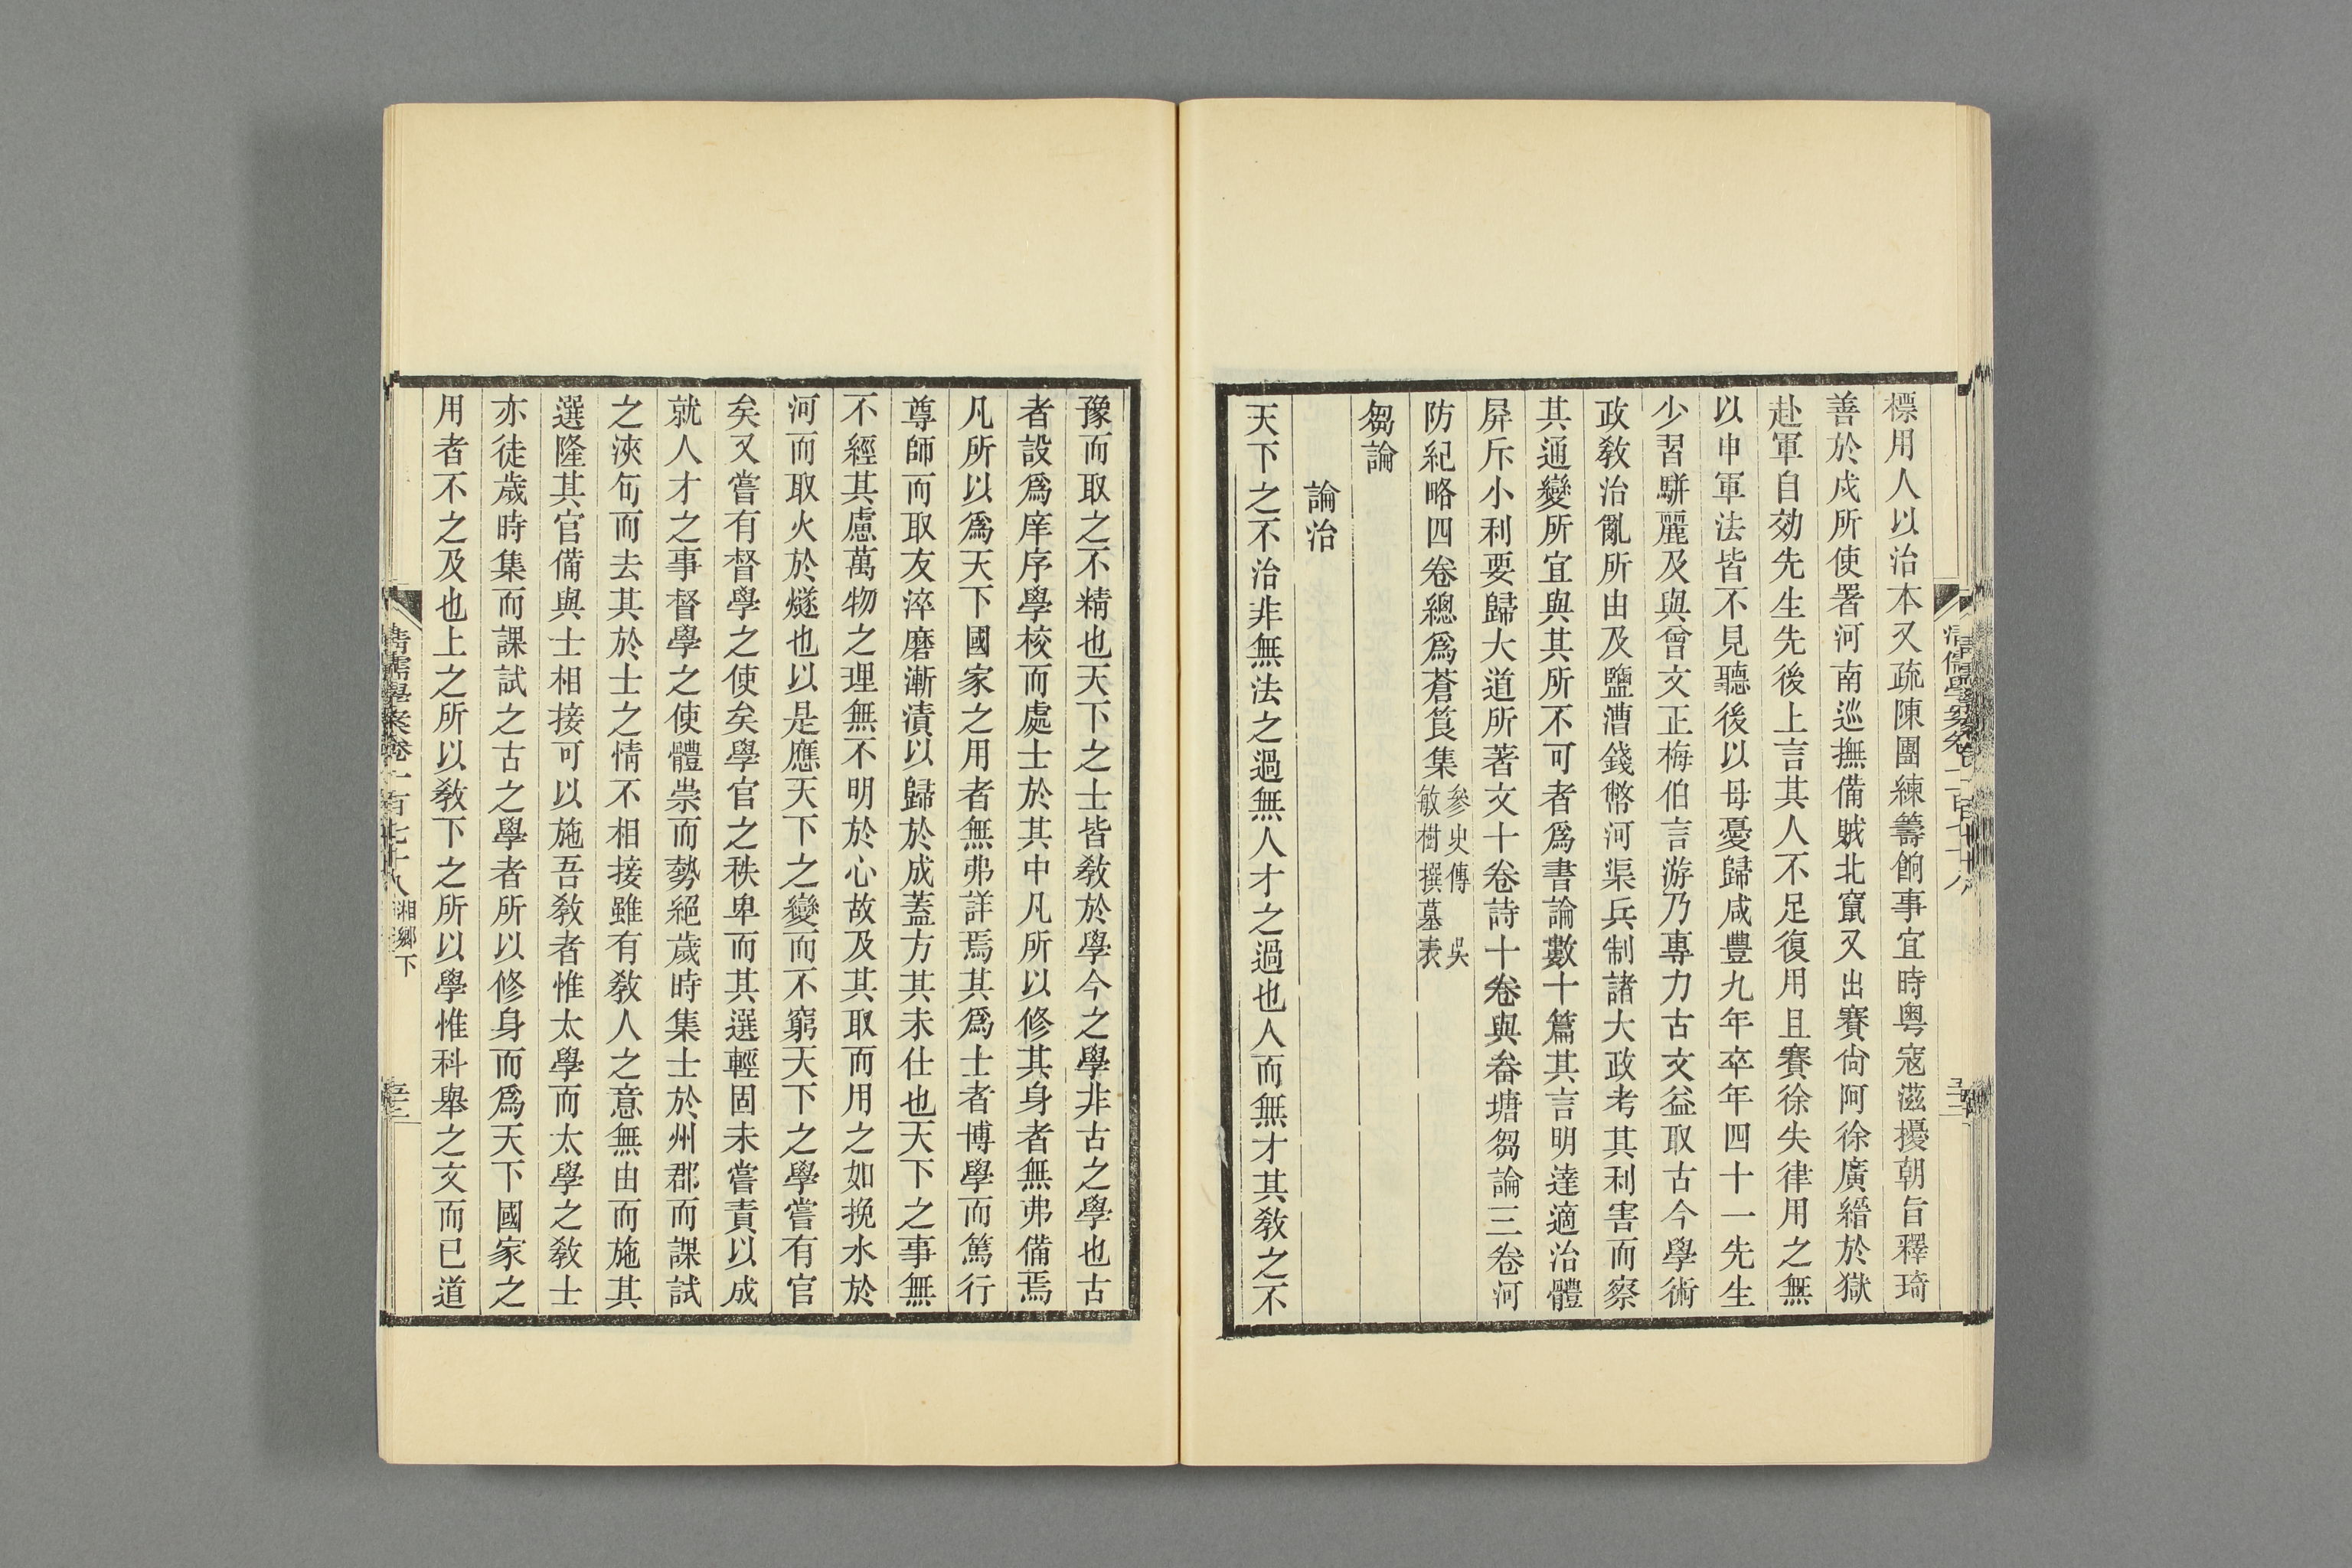 標用人以治本又疏陳團練籌餉事宜時粵寇滋擾朝旨釋琦
善於戍所使署河南巡撫備賊北竄又出賽尙阿徐廣縉於獄
赴軍自効先生先後上言其人不足復用且賽徐失律用之無
以申軍法皆不見聽後以母憂歸咸豐九年卒年四十一先生
少習駢麗及與曾文正梅伯言游乃專力古文益取古今學術
政敎治亂所由及鹽漕錢幣河渠兵制諸大政考其利害而察
其通變所宜與其所不可者爲書論數十篇其言明達適治體
屛斥小利要歸大道所著文十卷詩十卷與畚塘芻論三卷河
防紀略四卷總爲蒼筤集參史傳 吳敏樹撰墓表
芻論
論治
天下之不治非無法之過無人才之過也人而無才其敎之不
豫而取之不精也天下之士皆敎於學今之學非古之學也古
者設爲庠序學校而處士於其中凡所以修其身者無弗備焉
凡所以爲天下國家之用者無弗詳焉其爲士者博學而篤行
尊師而取友淬磨漸漬以歸於成蓋方其未仕也天下之事無
不經其慮萬物之理無不明於心故及其取而用之如挽水於
河而取火於燧也以是應天下之變而不窮天下之學嘗有官
矣又嘗有督學之使矣學官之秩卑而其選輕固未嘗責以成
就人才之事督學之使體崇而勢絕歲時集士於州郡而課試
之浹旬而去其於士之情不相接雖有敎人之意無由而施其
選隆其官備與士相接可以施吾敎者惟太學而太學之敎士
亦徒歲時集而課試之古之學者所以修身而爲天下國家之
用者不之及也上之所以敎下之所以學惟科舉之文而已道
清儒學案卷一百七十八 湘鄉下